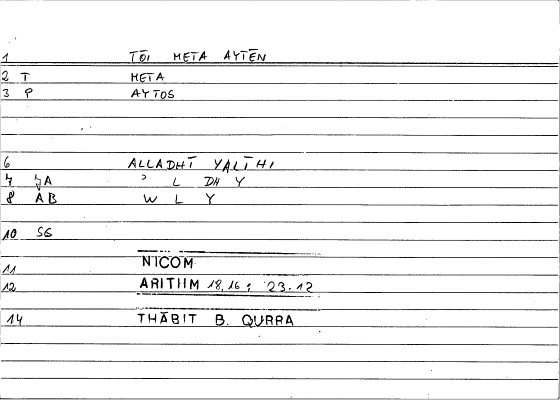 1 TŌI META AYTĒN
2 T META
3 P AYTOS
6 ALLADHĪ YALĪHI
7 JA ' L DH Y
8 AB W L Y
10 SG
11 NICOM
12 ARITHM 18,16 ; 23.12
14 THĀBIT B. QURRA